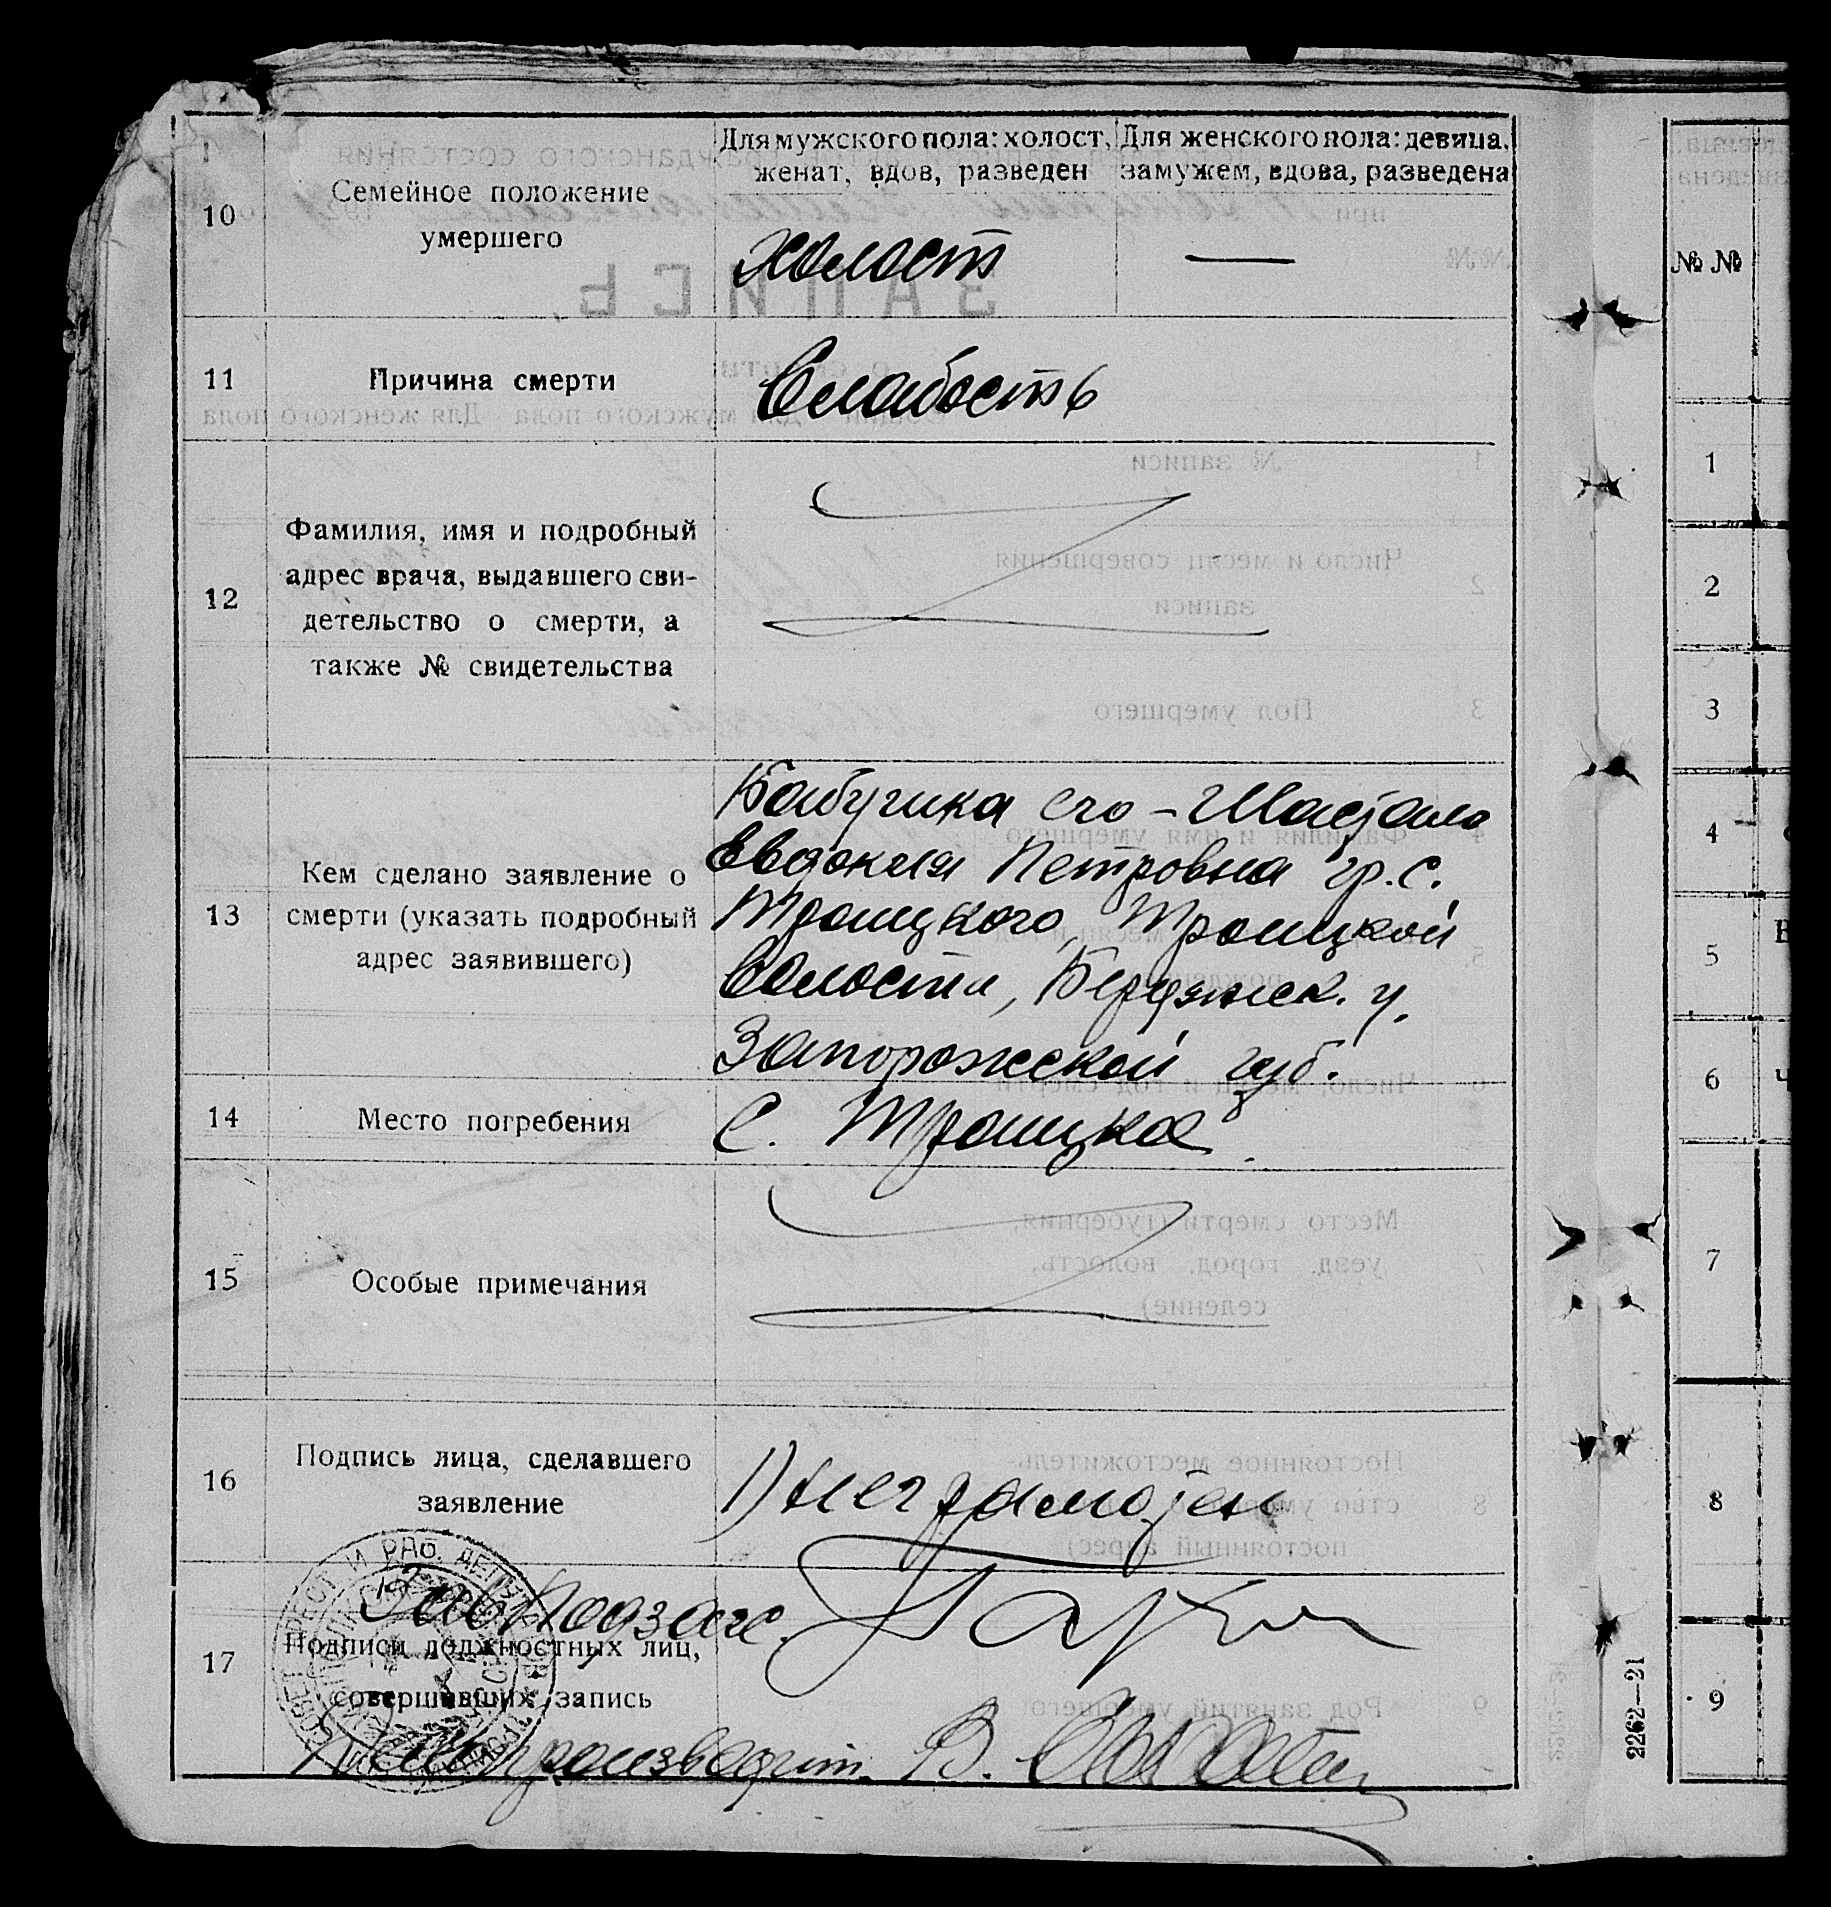 Для мужского пола: холост, женат, вдов, разведен
Для женского пола: девица, замужем, вдова, разведена
10
Семейное положение
умершего
холост
—
11
Причина смерти
Слабость
12
Фамилия, имя и подробный
адрес врача, выдавшего сви-
детельство о смерти, а
также № свидетельства
13
Кем сделано заявление о
смерти (указать подробный
адрес заявившего)
Бабушка его –
Евдокия Петровна гр. с.
Троицкого, Троицкой
волости, Бердянск. у.
Запорожской губ.
14
Место погребения
С. Троицкое
15
Особые примечания
16
Подпись лица, сделавшего
заявление
1) неграмотен
17
Подписи должностных лиц,
совершивших запись
Зав. Подзагс
Делопроизводит. В.
№ №
1
2
3
4
5
6
7
8
9
2262—21